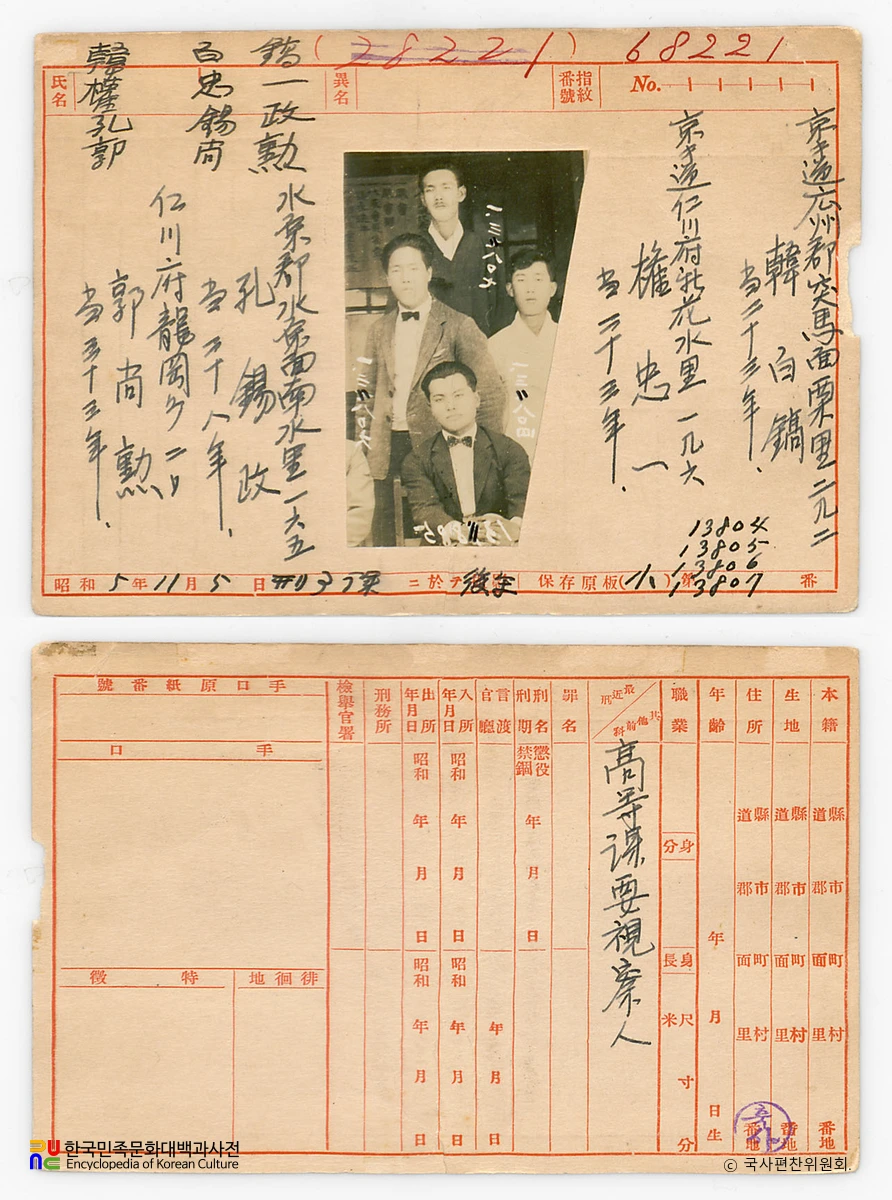 氏名
韓權孔郭
百忠錫尚
鎬一政勲
異名
(28221)
68221
指紋番號
No.
京キ道広州郡突馬面栗里二九二
韓百鎬
当二十三年.
京キ道仁川府新花水里一九六
權忠一
当二十三年.
水原郡水原面南水里一六五
孔錫政
当二十八年.
仁川府龍岡町二日
郭尚勲
当三十三年.
13804
13805
13806
13807
昭和5年11月5日
ニ於テ
保存原板
第
番
本籍
道縣
郡市
面町
里村
番地
生地
道縣
郡市
面町
里村
番地
住所
道縣
郡市
面町
里村
番地
年齢
年
月
日生
職業
身分
身長
尺米
寸
分
最近刑
其他前科
高等課要視察人
罪名
刑名
刑期
懲役
禁錮
年
月
日
言渡官廳
年
月
日
入所年月日
昭和
年
月
日
昭和
年
月
日
出所年月日
昭和
年
月
日
昭和
年
月
日
刑務所
檢擧官署
手口原紙番號
手口
徘徊地
特徵
한국민족문화대백과사전
Encyclopedia of Korean Culture
© 국사편찬위원회